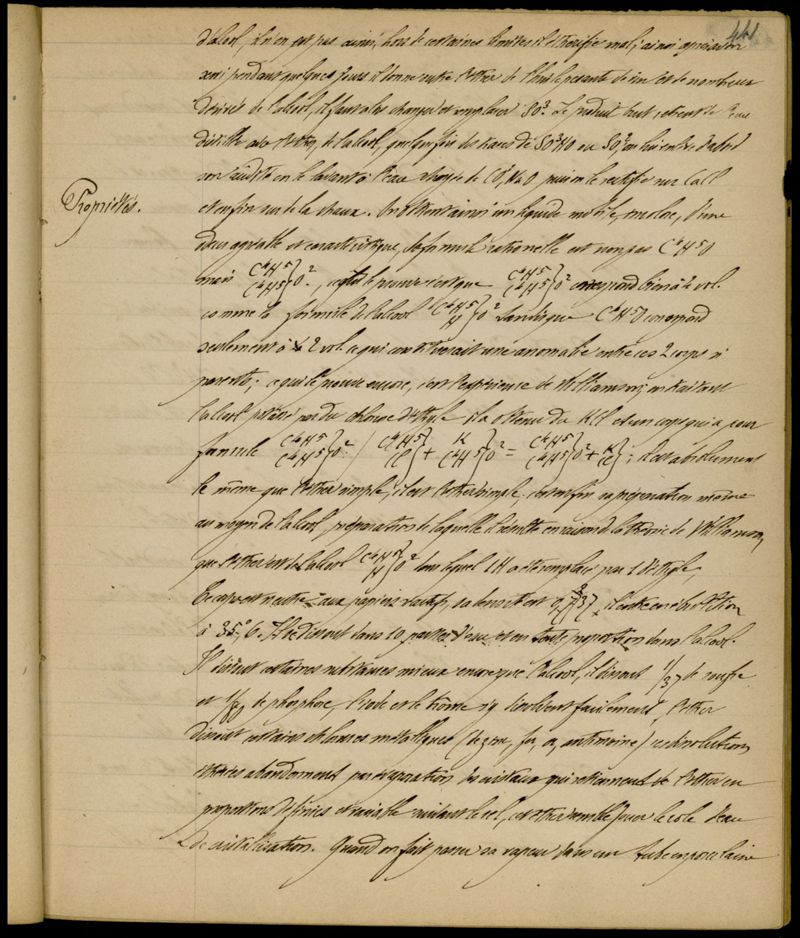 441
d'alcool, il n'en est pas ainsi, hors de certaines limites il éthérifie mal; ainsi après avoir
servi pendant quelques jours il donne outre l'éther de l'huile pesante de vin et de nombreux
dérivés de l'alcool, il faut alors changer et remplacer SO³. Le produit brut, retient de l'eau
distillée avec l'éther, de l'alcool, quelquefois des traces de SO³HO ou SO². on lui enlève d'abord
son acidité en le lavant à l'eau chargée de CO²,NaO puis on le rectifie sur CaCl
Propriétés.
et enfin sur de la chaux. On obtient ainsi un liquide mobile, incolore, d'une
odeur agréable et caractéristique, sa formule rationelle est non pas C⁴H⁵O
mais C⁴H⁵ C⁴H⁵}O²., ce qui le prouve c'est que C⁴H⁵ C⁴H⁵}O² correspond bien à 2 vol.
comme la formule de l'alcool C⁴H⁵ H}O² tandis que C⁴H⁵O correspond
seulement à 2 vol. ce qui constituerait une anomalie entre ces 2 corps si
parents; ce qui le prouve encore, c'est l'expérience de Williamson; en traitant
l'alcool potassé par du chlorure d'éthyle il a obtenu du KCl et un corps qui a pour
formule C⁴H⁵ C⁴H⁵}O²: / C⁴H⁵ Cl} + K C⁴H⁵}O² = C⁴H⁵ C⁴H⁵}O² + K Cl}; il est absolument
le même que l'éther simple; c'est l'éther simple. c'est enfin sa préparation même
au moyen de l'alcool, préparation de laquelle il résulte en raison de la théorie de Williamson,
que l'éther est de l'alcool C⁴H⁵ H}O² dans lequel 1H a été remplacé par 1 d'éthyle;
Ce corps est neutre aux papiers réactifs, sa densité est 0,737, il entre en ébullition
à 35°,6. Il se dissout dans 10 parties d'eau, et en toute proportion dans l'alcool.
Il dissout certaines substances mieux encore que l'alcool, il dissout 1/37 de soufre
et de phosphore, l'iode et le brome s'y dissolvent facilement, l'éther
dissout certains chlorures métalliques (de zinc, fer, or, antimoine) ces dissolutions
éthérées abandonnent par évaporation des cristaux qui retiennent de l'éther en
proportions définies et variable suivant le sel, cet éther semble jouer le rôle d'eau
de cristallisation. Quand on fait passer sa vapeur dans un tube en porcelaine